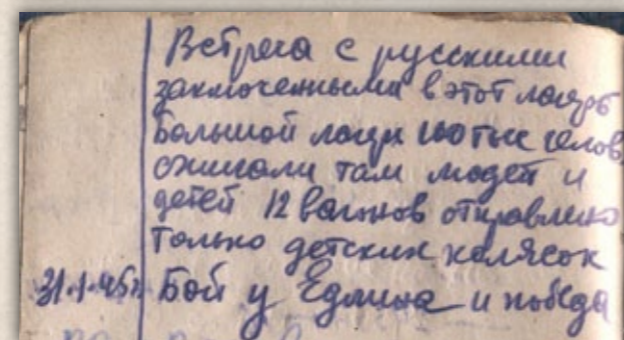 Встреча с русскими
заключенными в этот лагерь
Большой лагерь 140 тыс челов
сжигали там людей и
детей 12 вагонов отправлено
только детских колясок
31.1.45г. Бой у Едлина и победа